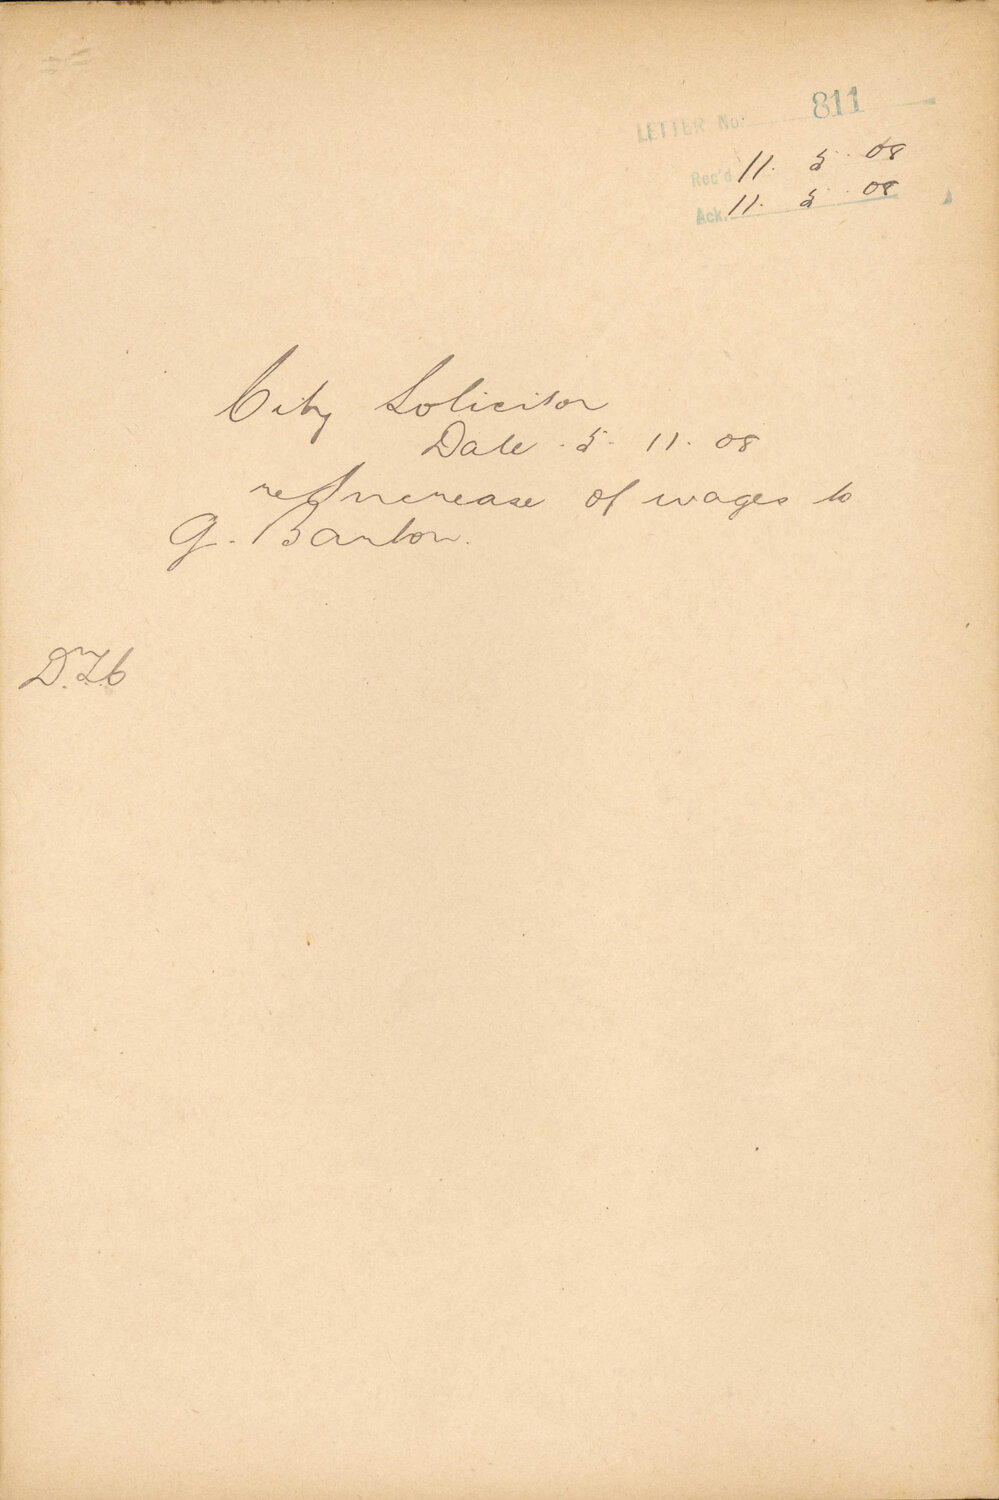 LETTER No. 811
Rec'd 11. 5. 08
Ack. 11. 5. 08
City Solicitor
Date 5. 11. 08
re Increase of wages to
G. Barlow.